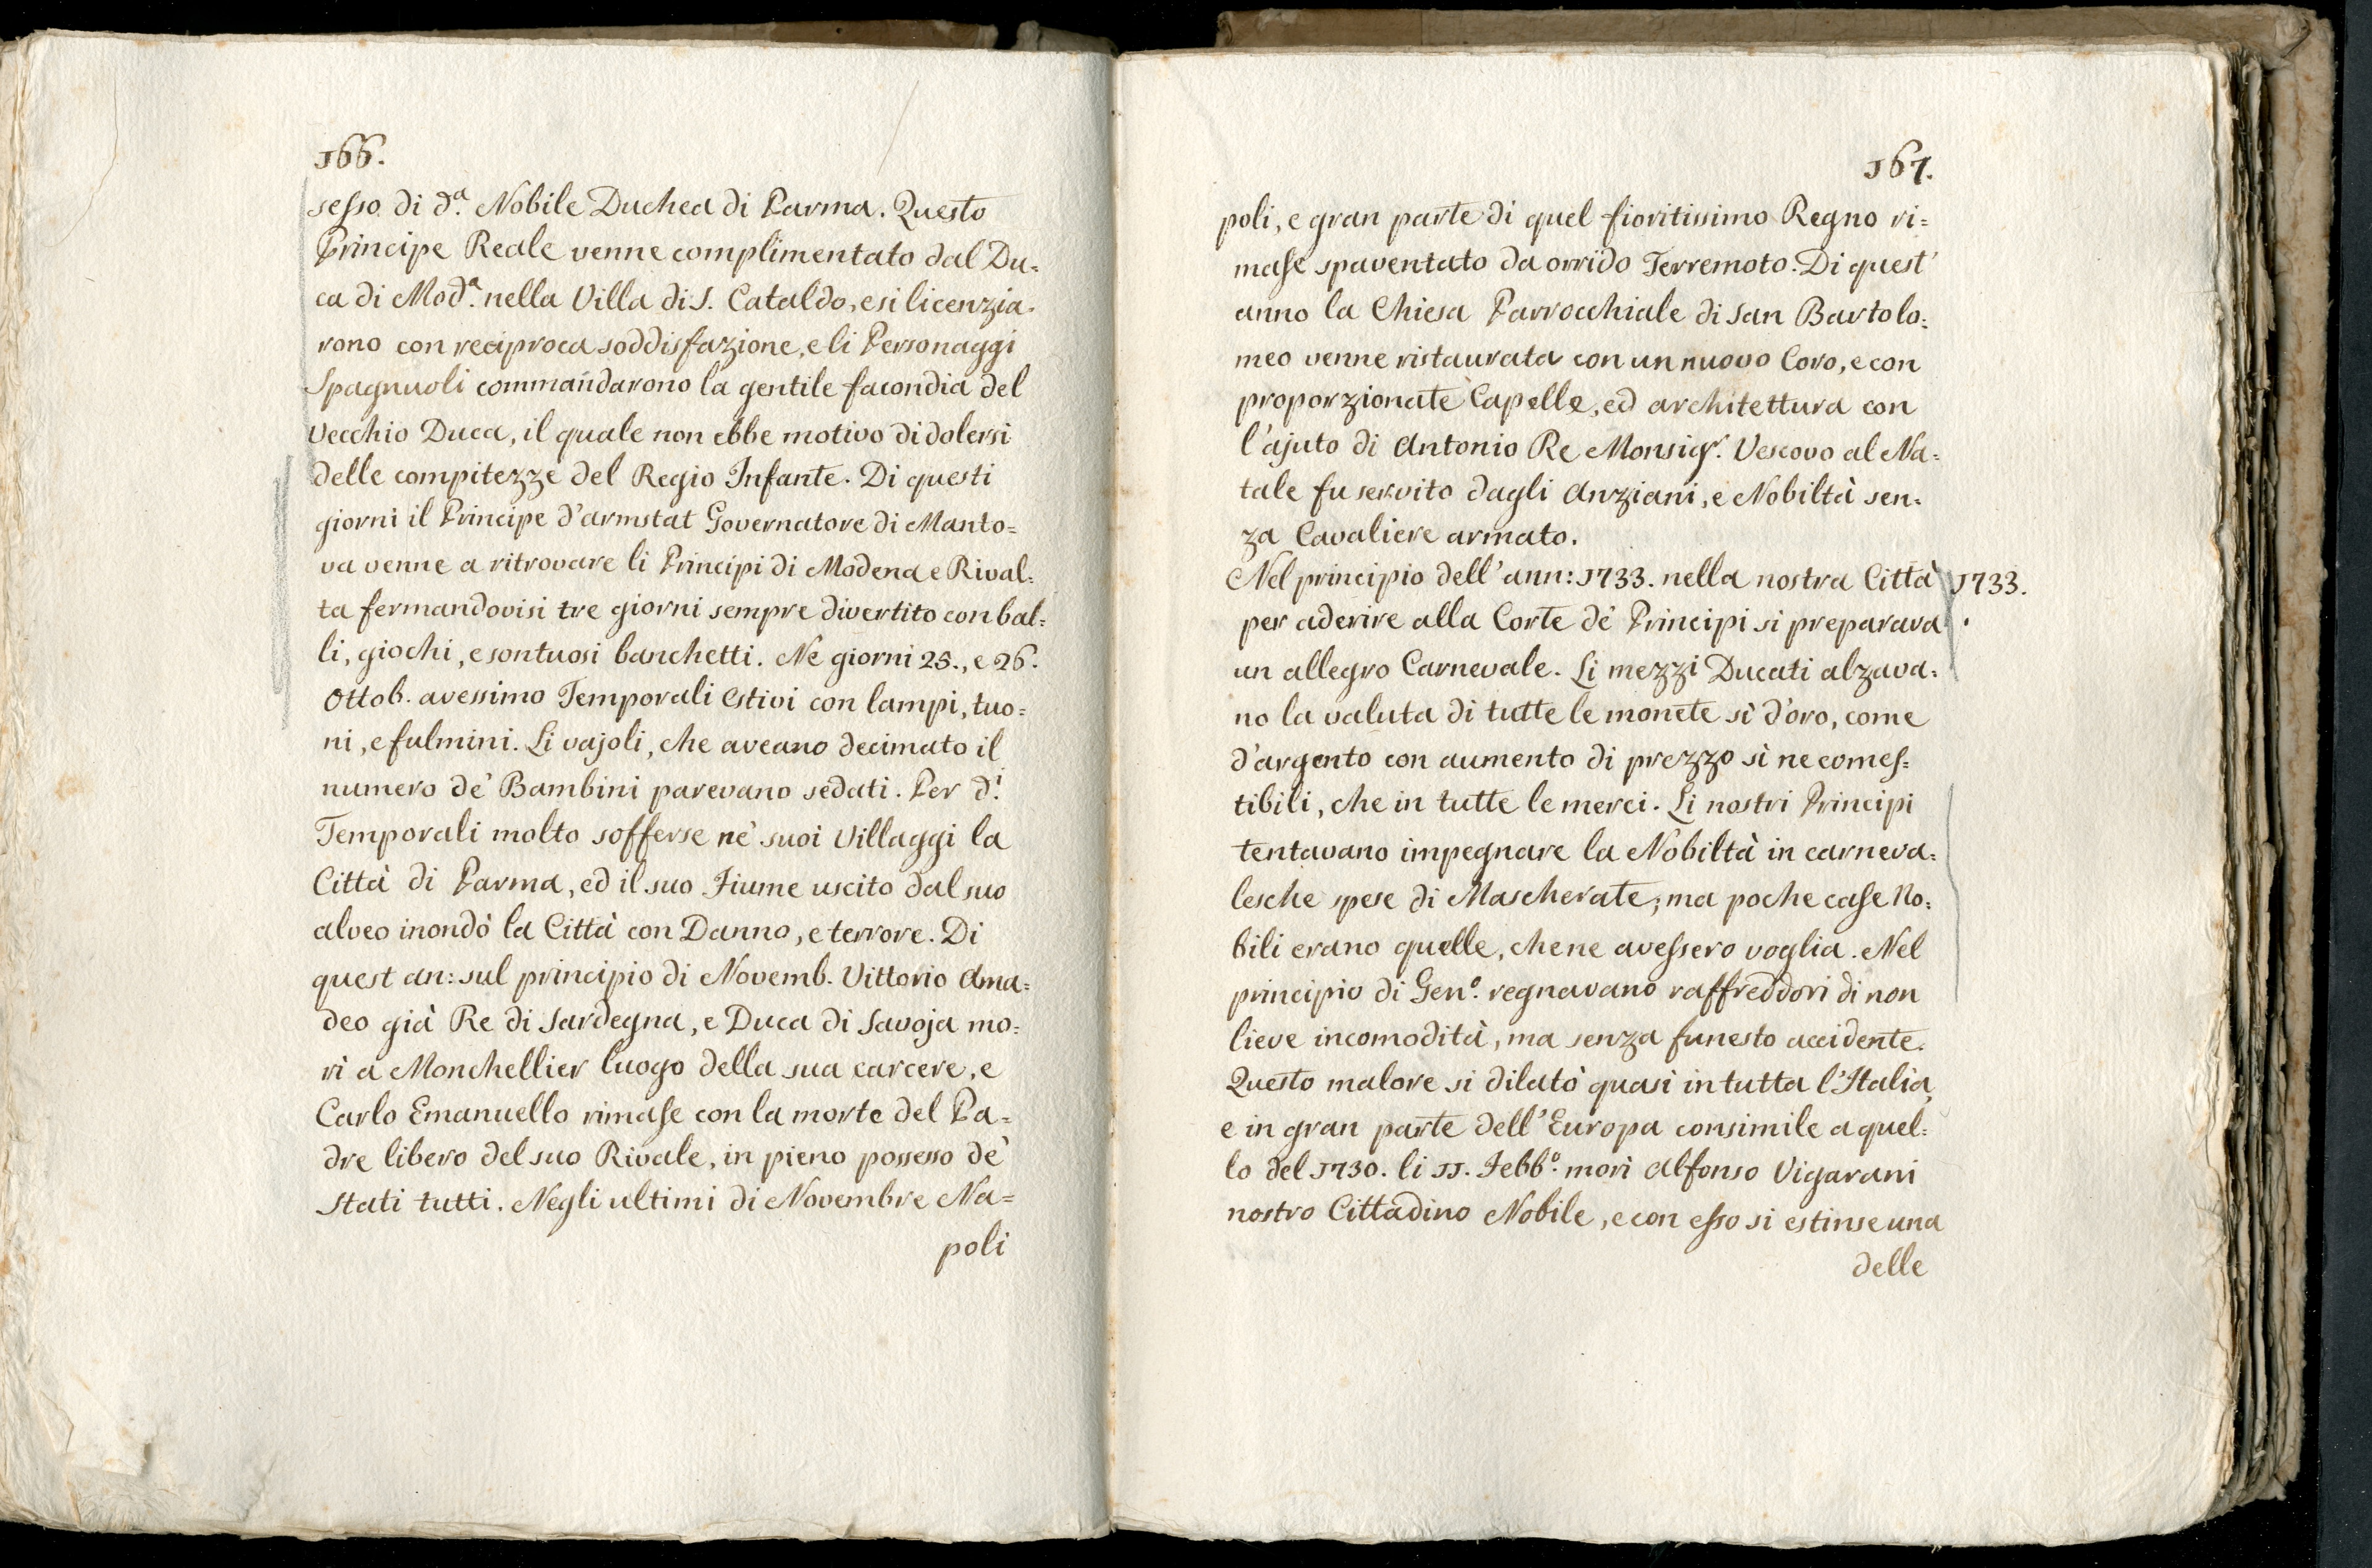 166.
sesso di d.ª Nobile Duchea di Parma. Questo
Principe Reale venne complimentato dal Du=
ca di Mod.ª nella Villa di S. Cataldo, e si licenzia=
rono con reciproca soddisfazione, e li Personaggi
Spagnuoli commandarono la gentile facondia del
Vecchio Duca, il quale non ebbe motivo di dolersi
delle compitezze del Regio Infante. Di questi
giorni il Principe d'armstat Governatore di Manto=
va venne a ritrovare li Principi di Modena e Rival=
ta fermandovisi tre giorni sempre divertito con bal=
li, giochi, e sontuosi banchetti. Ne giorni 25., e 26.
Ottob. avessimo Temporali Estivi con lampi, tuo=
ni, e fulmini. Li vajoli, che aveano decimato il
numero de' Bambini parevano sedati. Per d.ⁱ
Temporali molto sofferse ne' suoi Villaggi la
Città di Parma, ed il suo Fiume uscito dal suo
alveo inondò la Città con Danno, e terrore. Di
quest an: sul principio di Novemb. Vittorio Ama=
deo già Re di Sardegna, e Duca di Savoja mo=
rì a Monchellier luogo della sua carcere, e
Carlo Emanuello rimase con la morte del Pa=
dre libero del suo Rivale, in pieno possesso de'
Stati tutti. Negli ultimi di Novembre Na=
poli
167.
poli, e gran parte di quel fioritissimo Regno ri=
mase spaventato da orrido Terremoto. Di quest'
anno la Chiesa Parrocchiale di San Bartolo=
meo venne ristaurata con un nuovo Coro, e con
proporzionate Capelle, ed architettura con
l'ajuto di Antonio Re Monsig.ʳ Vescovo al Na=
tale fu servito dagli Anziani, e Nobiltà sen=
za Cavaliere armato.
Nel principio dell'ann: 1733. nella nostra Città 1733.
per aderire alla Corte de' Principi si preparava
un allegro Carnevale. Li mezzi Ducati alzava=
no la valuta di tutte le monete sì d'oro, come
d'argento con aumento di prezzo sì ne comes=
tibili, che in tutte le merci. Li nostri Principi
tentavano impegnare la Nobiltà in carneva=
lesche spese di Mascherate; ma poche case No=
bili erano quelle, che ne avessero voglia. Nel
principio di Gen.º regnavano raffreddori di non
lieve incomodità, ma senza funesto accidente.
Questo malore si dilatò quasi in tutta l'Italia,
e in gran parte dell'Europa consimile a quel=
lo del 1730. li 11. Febb.º morì Alfonso Vigarani
nostro Cittadino Nobile, e con esso si estinse una
delle